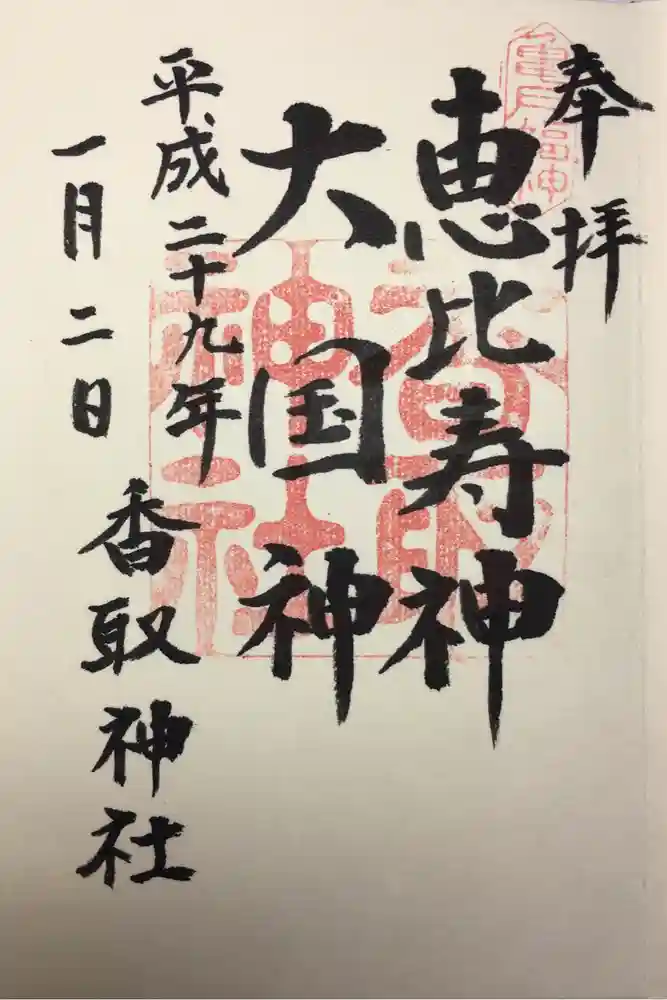 奉拝
恵比寿神
大国神
平成二十九年
一月二日
香取神社
香取神社